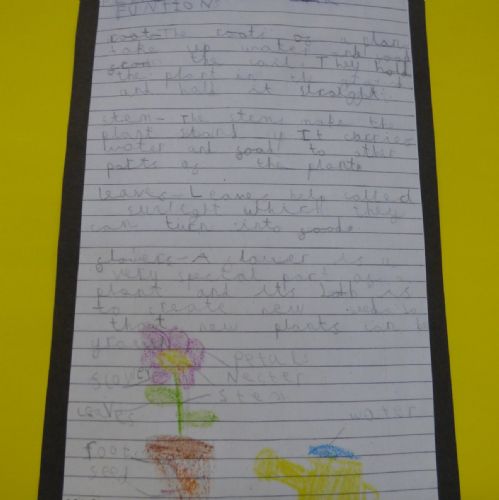 FUNTION:
roots-The roots of a plant
take up water and food
from the soil. They hold
the plant in the
and hold it straight.
stem- The stems make the
plant stand up It carries
water and food to other
parts of the plant.
leaves- Leaves help
sunlight which they
can turn into food.
flowers- A flower is a
very special part of a
plant and its is
to new
that new plants can be
grown
petal
flower
Necter
stem
leaves
water
roots
seed